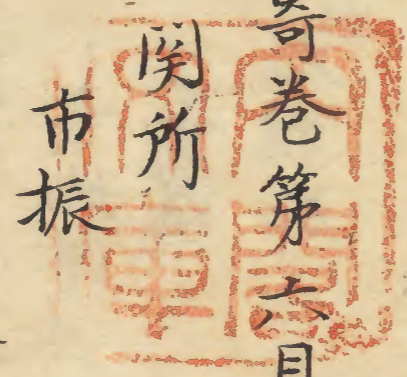 奇巻第六目
関所
市振